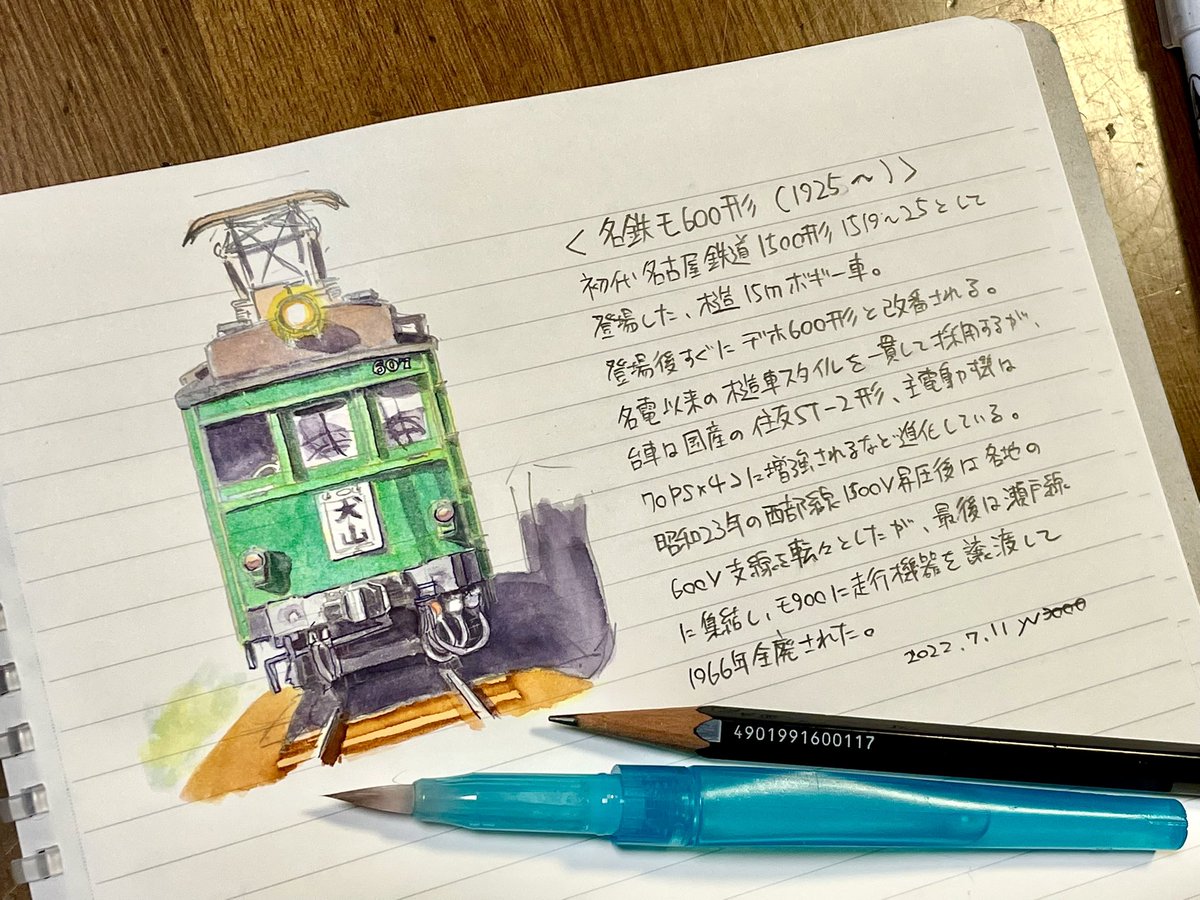 607
犬山
<名鉄モ600形 (1925〜)>
初代名古屋鉄道1500形1519〜25として
登場した、木造15mボギー車。
登場後すぐにデホ600形と改番される。
名電以来の木造車スタイルを一貫して採用するが、
台車は国産の住友ST-2形、主電動機は
70PS×4コに増強されるなど進化している。
昭和23年の西部線1500V昇圧後は各地の
600V支線を転々としたが、最後は瀬戸線
に集結し、モ900に走行機器を譲渡して
1966年全廃された。
2022.7.11
4901991600117